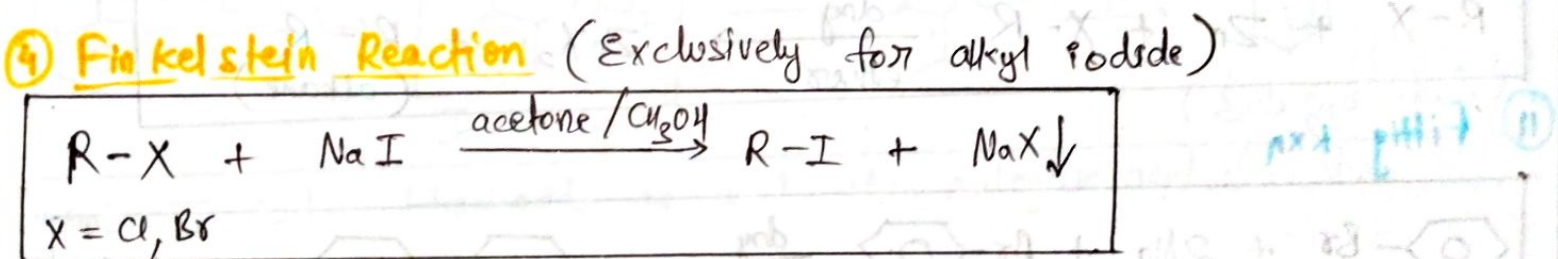 ④ Finkelstein Reaction (Exclusively for alkyl iodide)
R-X + NaI acetone/CH₃OH → R-I + NaX↓
X = Cl, Br